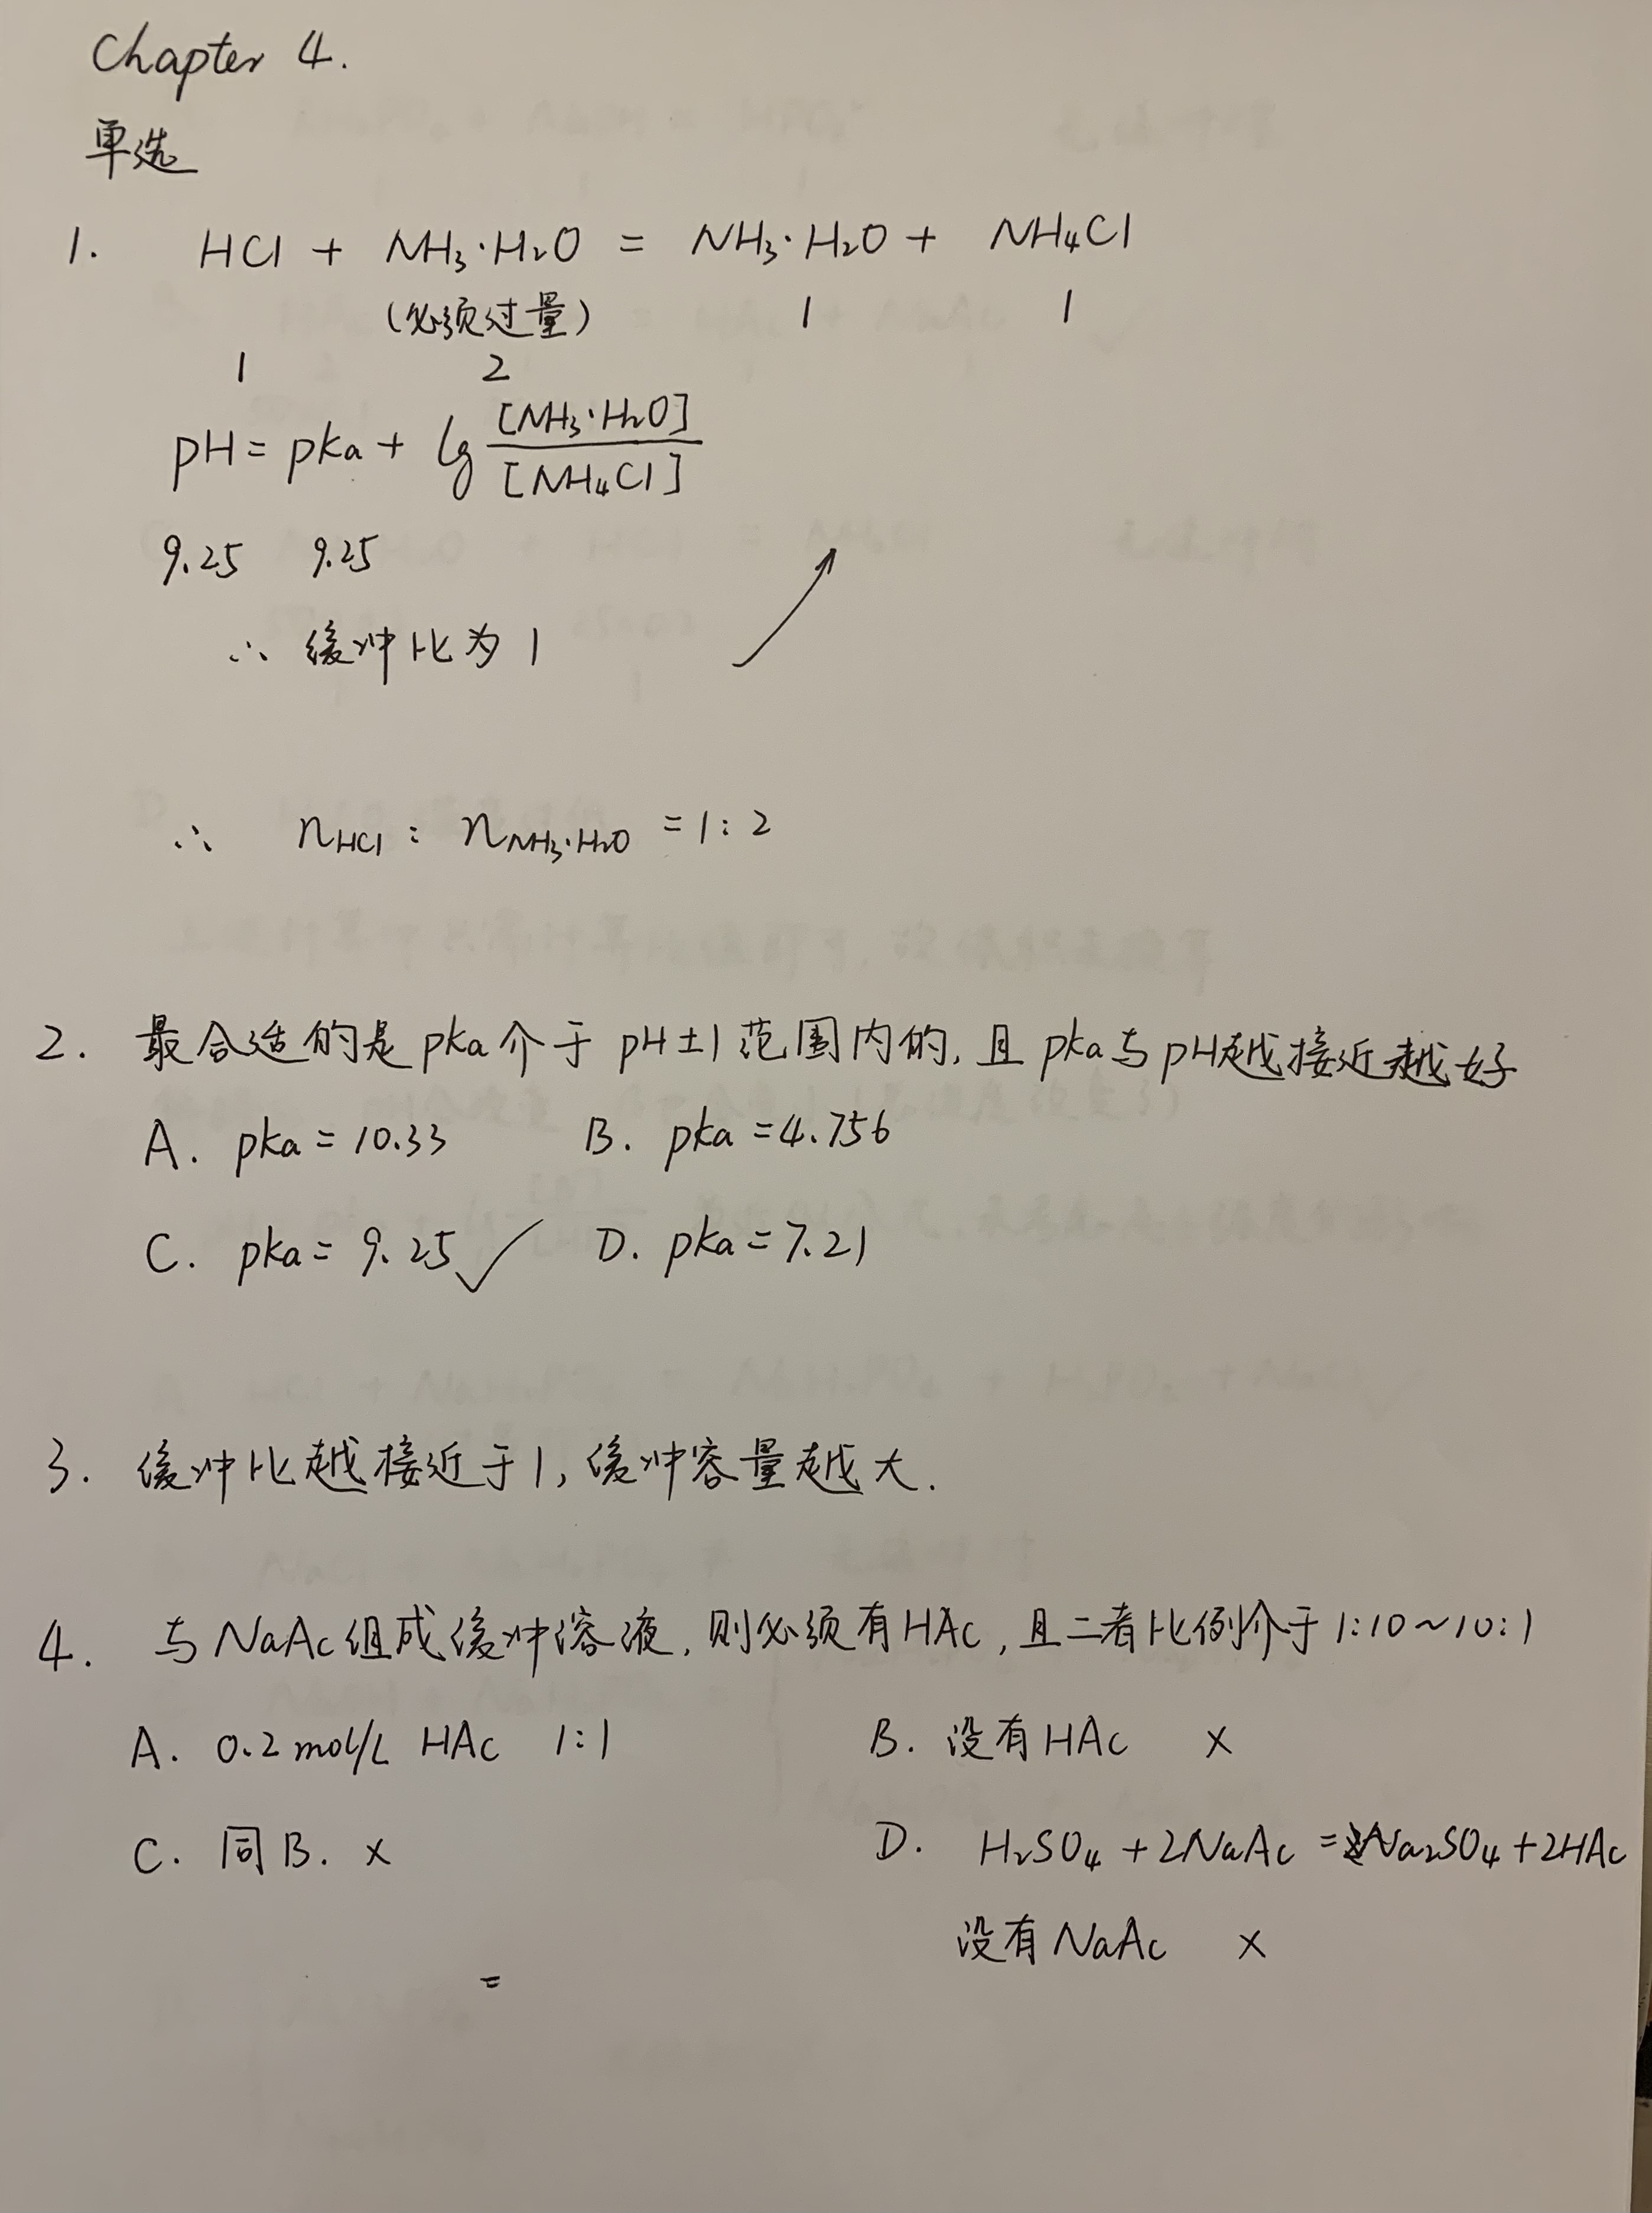 Chapter 4.
单选
1. HCl + NH₃·H₂O = NH₃·H₂O + NH₄Cl
(必须过量) 1 1
1 2
pH = pka + lg [NH₃·H₂O] / [NH₄Cl]
9.25 9.25
∴ 缓冲比为 1
∴ nHCl : nNH₃·H₂O = 1 : 2
2. 最合适的是 pka 介于 pH±1 范围内的, 且 pka 与 pH 越接近越好
A. pka = 10.33 B. pka = 4.756
C. pka = 9.25 ✓ D. pka = 7.21
3. 缓冲比越接近于1, 缓冲容量越大.
4. 与 NaAc 组成缓冲溶液, 则必须有 HAc, 且二者比例介于 1:10~10:1
A. 0.2 mol/L HAc 1:1 B. 没有 HAc ×
C. 同 B. × D. H₂SO₄ + 2NaAc = Na₂SO₄ + 2HAc
没有 NaAc ×
=